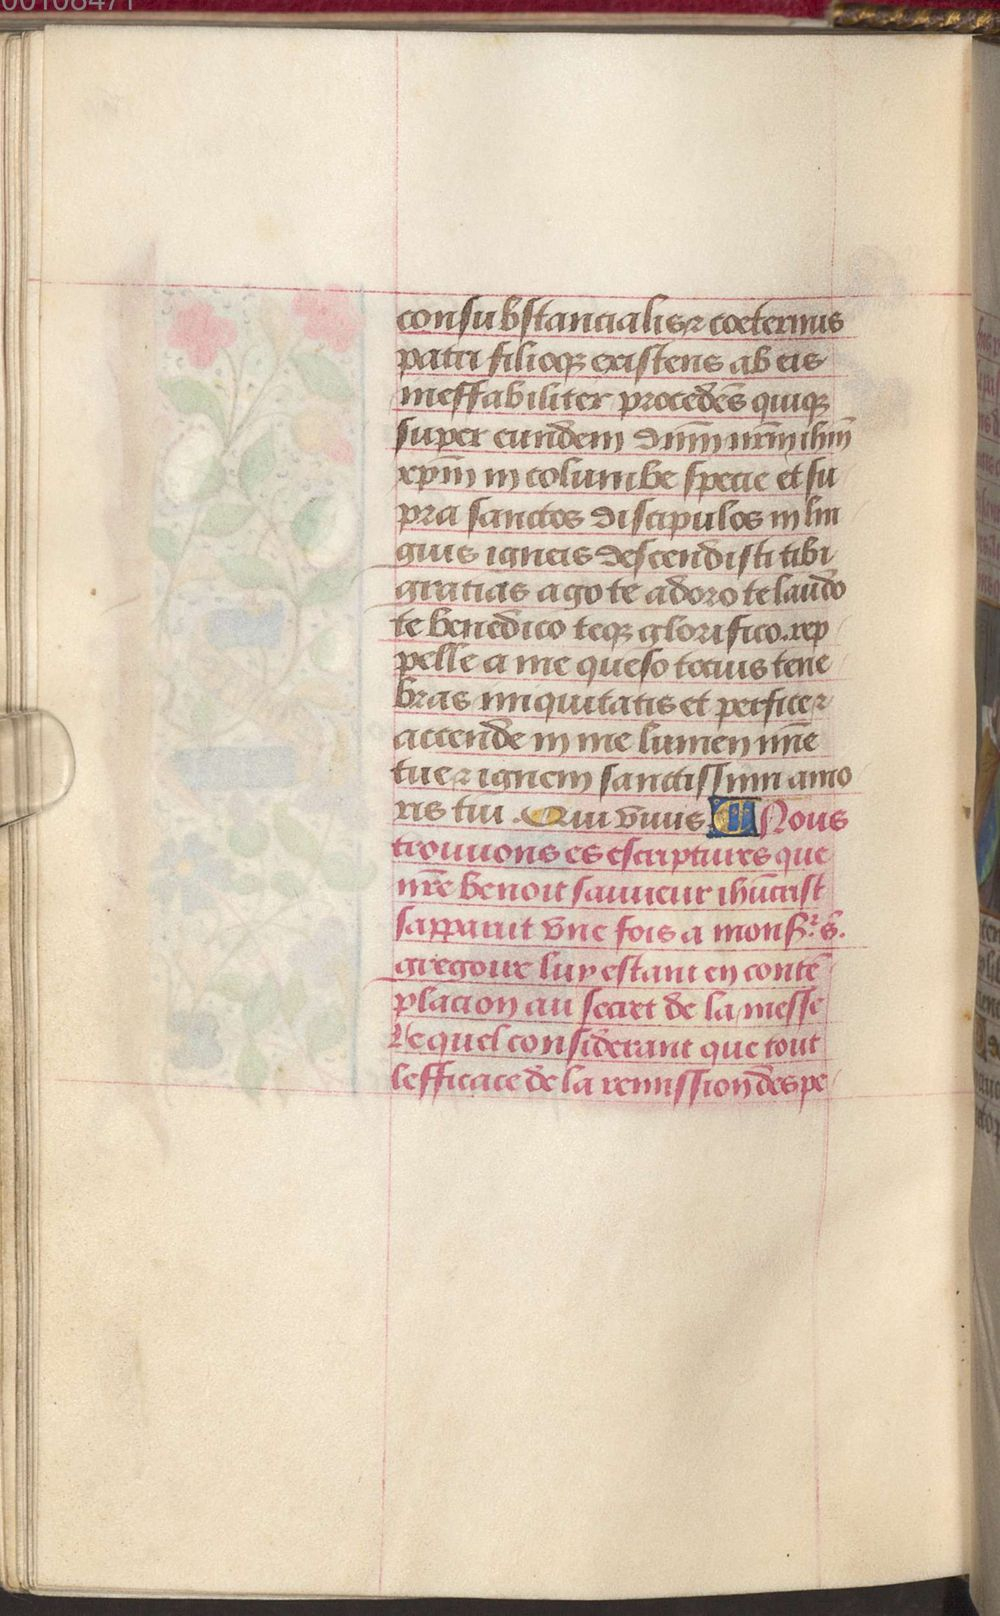 00108471
consubstancialis ⁊ coeternus
patri filioq; existens ab eis
ineffabiliter procedēs quiq;
super eundem dnm̄ nrm̄ ihm̄
xpm̄ in columbe specie et su
pra sanctos discipulos in lin
guis igneis descendisti tibi
gratias ago te adoro te laudo
te benedico teq; glorifico. rep
pelle a me queso tocius tene
bras iniquitatis et perfice ⁊
accende in me lumen mn̄e
tue ⁊ ignem sanctissimi amo
ris tui. Qui viuis Nous
trouuons es escriptures que
nr̄e benoit sauueur ihūcrist
sapparut vne fois a monsr. s.
gregoire luy estant en contē
placion au secret de la messe
Lequel considerant que tout
lefficace de la remission des pe